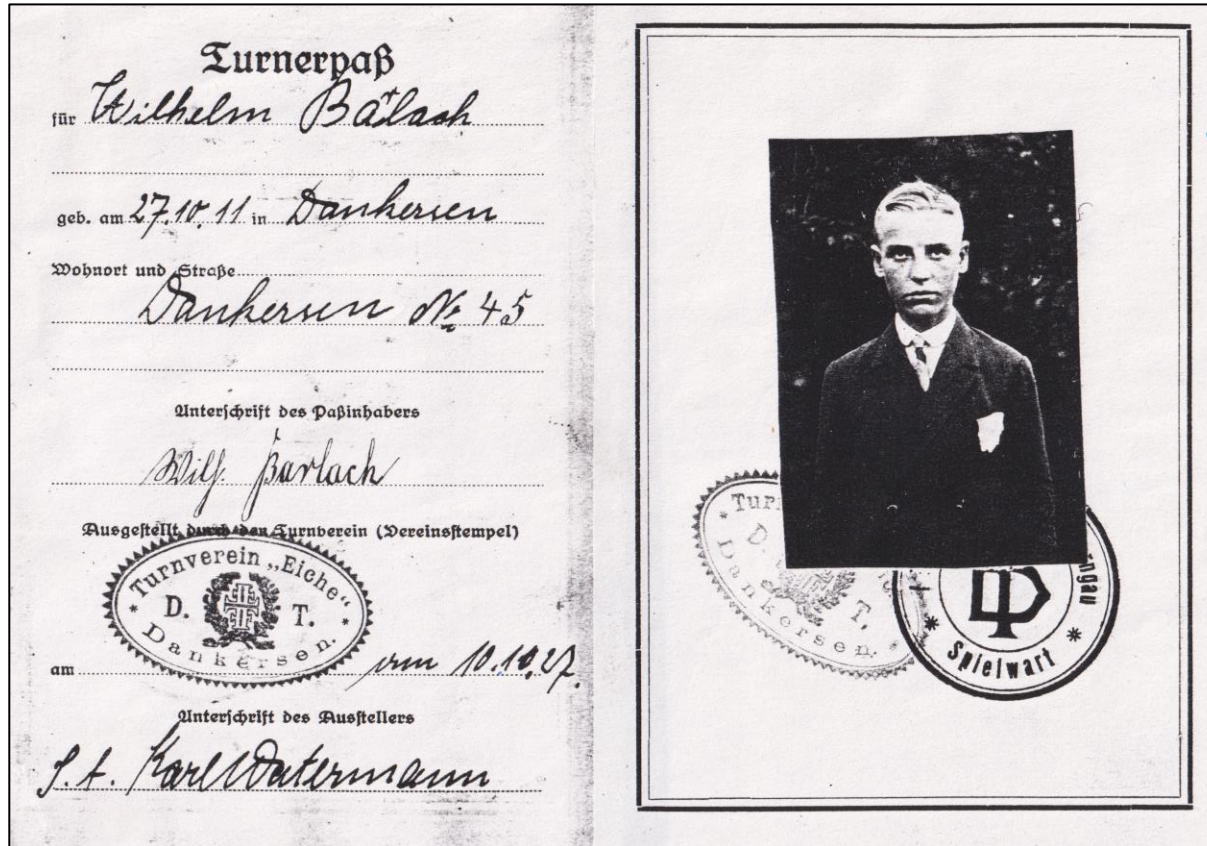 Turnerpaß
für Wilhelm Barlach
geb. am 27.10.11 in Dankersen
Wohnort und Straße
Dankersen № 45
Unterschrift des Paßinhabers
Wilh. Barlach
Ausgestellt durch den Turnverein (Vereinsstempel)
* Turnverein „Eiche“ *
D. T.
Dankersen.
am vom 10.10.27.
Unterschrift des Ausstellers
J. A. Karl Watermann
D. T.
Dankersen.
* Spielwart *